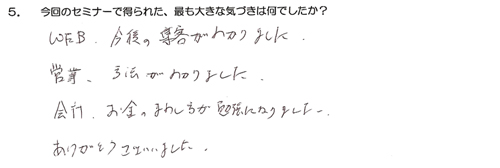 5. 今回のセミナーで得られた、最も大きな気づきは何でしたか？
WEB. 今後の専客がわかりました.
営業、手法がわかりました.
会計. お金のまわし方が勉強になりました.
ありがとうございました.